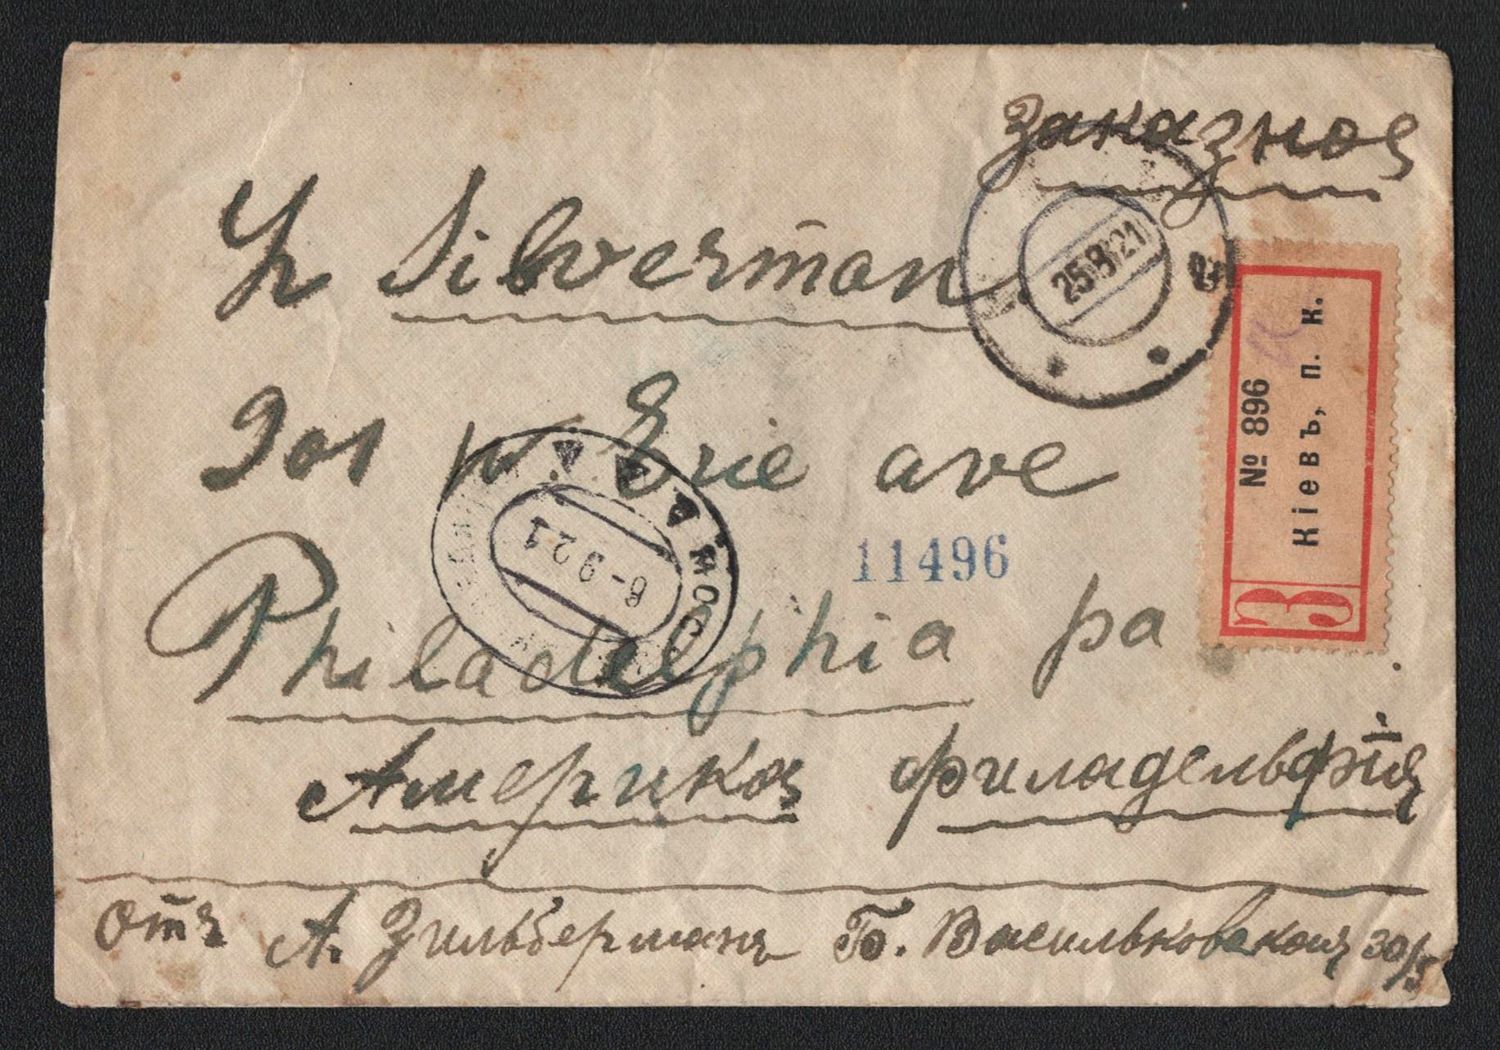 Заказное
Silverman
25.8.21
№ 896
Кіевъ, п. к.
З
W Erie ave
МОС
6-9 21
11496
Philadelphia pa
Америка Филадельфія
Отъ А. Зильберманъ Б. Васильковская 30/5